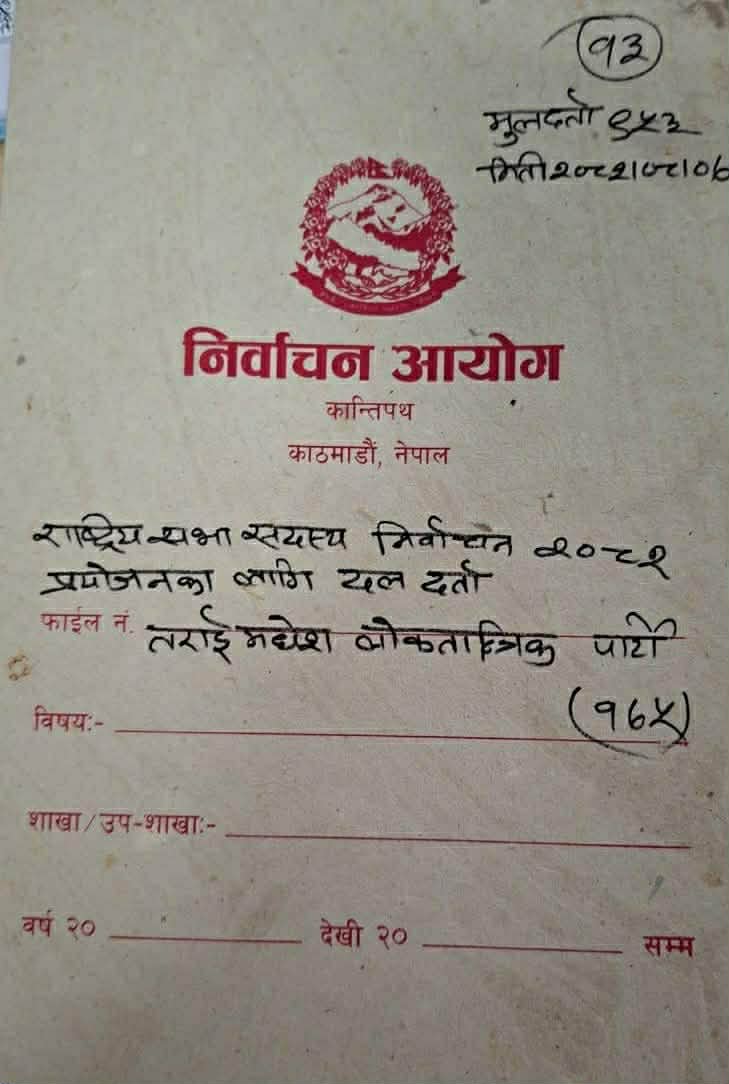 १३
मुलदर्ता ९५३
मिती २०८२।०८।०७
निर्वाचन आयोग
कान्तिपथ
काठमाडौं, नेपाल
राष्ट्रिय सभा सदस्य निर्वाचन २०८२
प्रयोजनका लागि दल दर्ता
फाईल नं. तराई मधेश लोकतान्त्रिक पार्टी
(१६५)
विषय:-
शाखा/उप-शाखा:-
वर्ष २० देखी २० सम्म